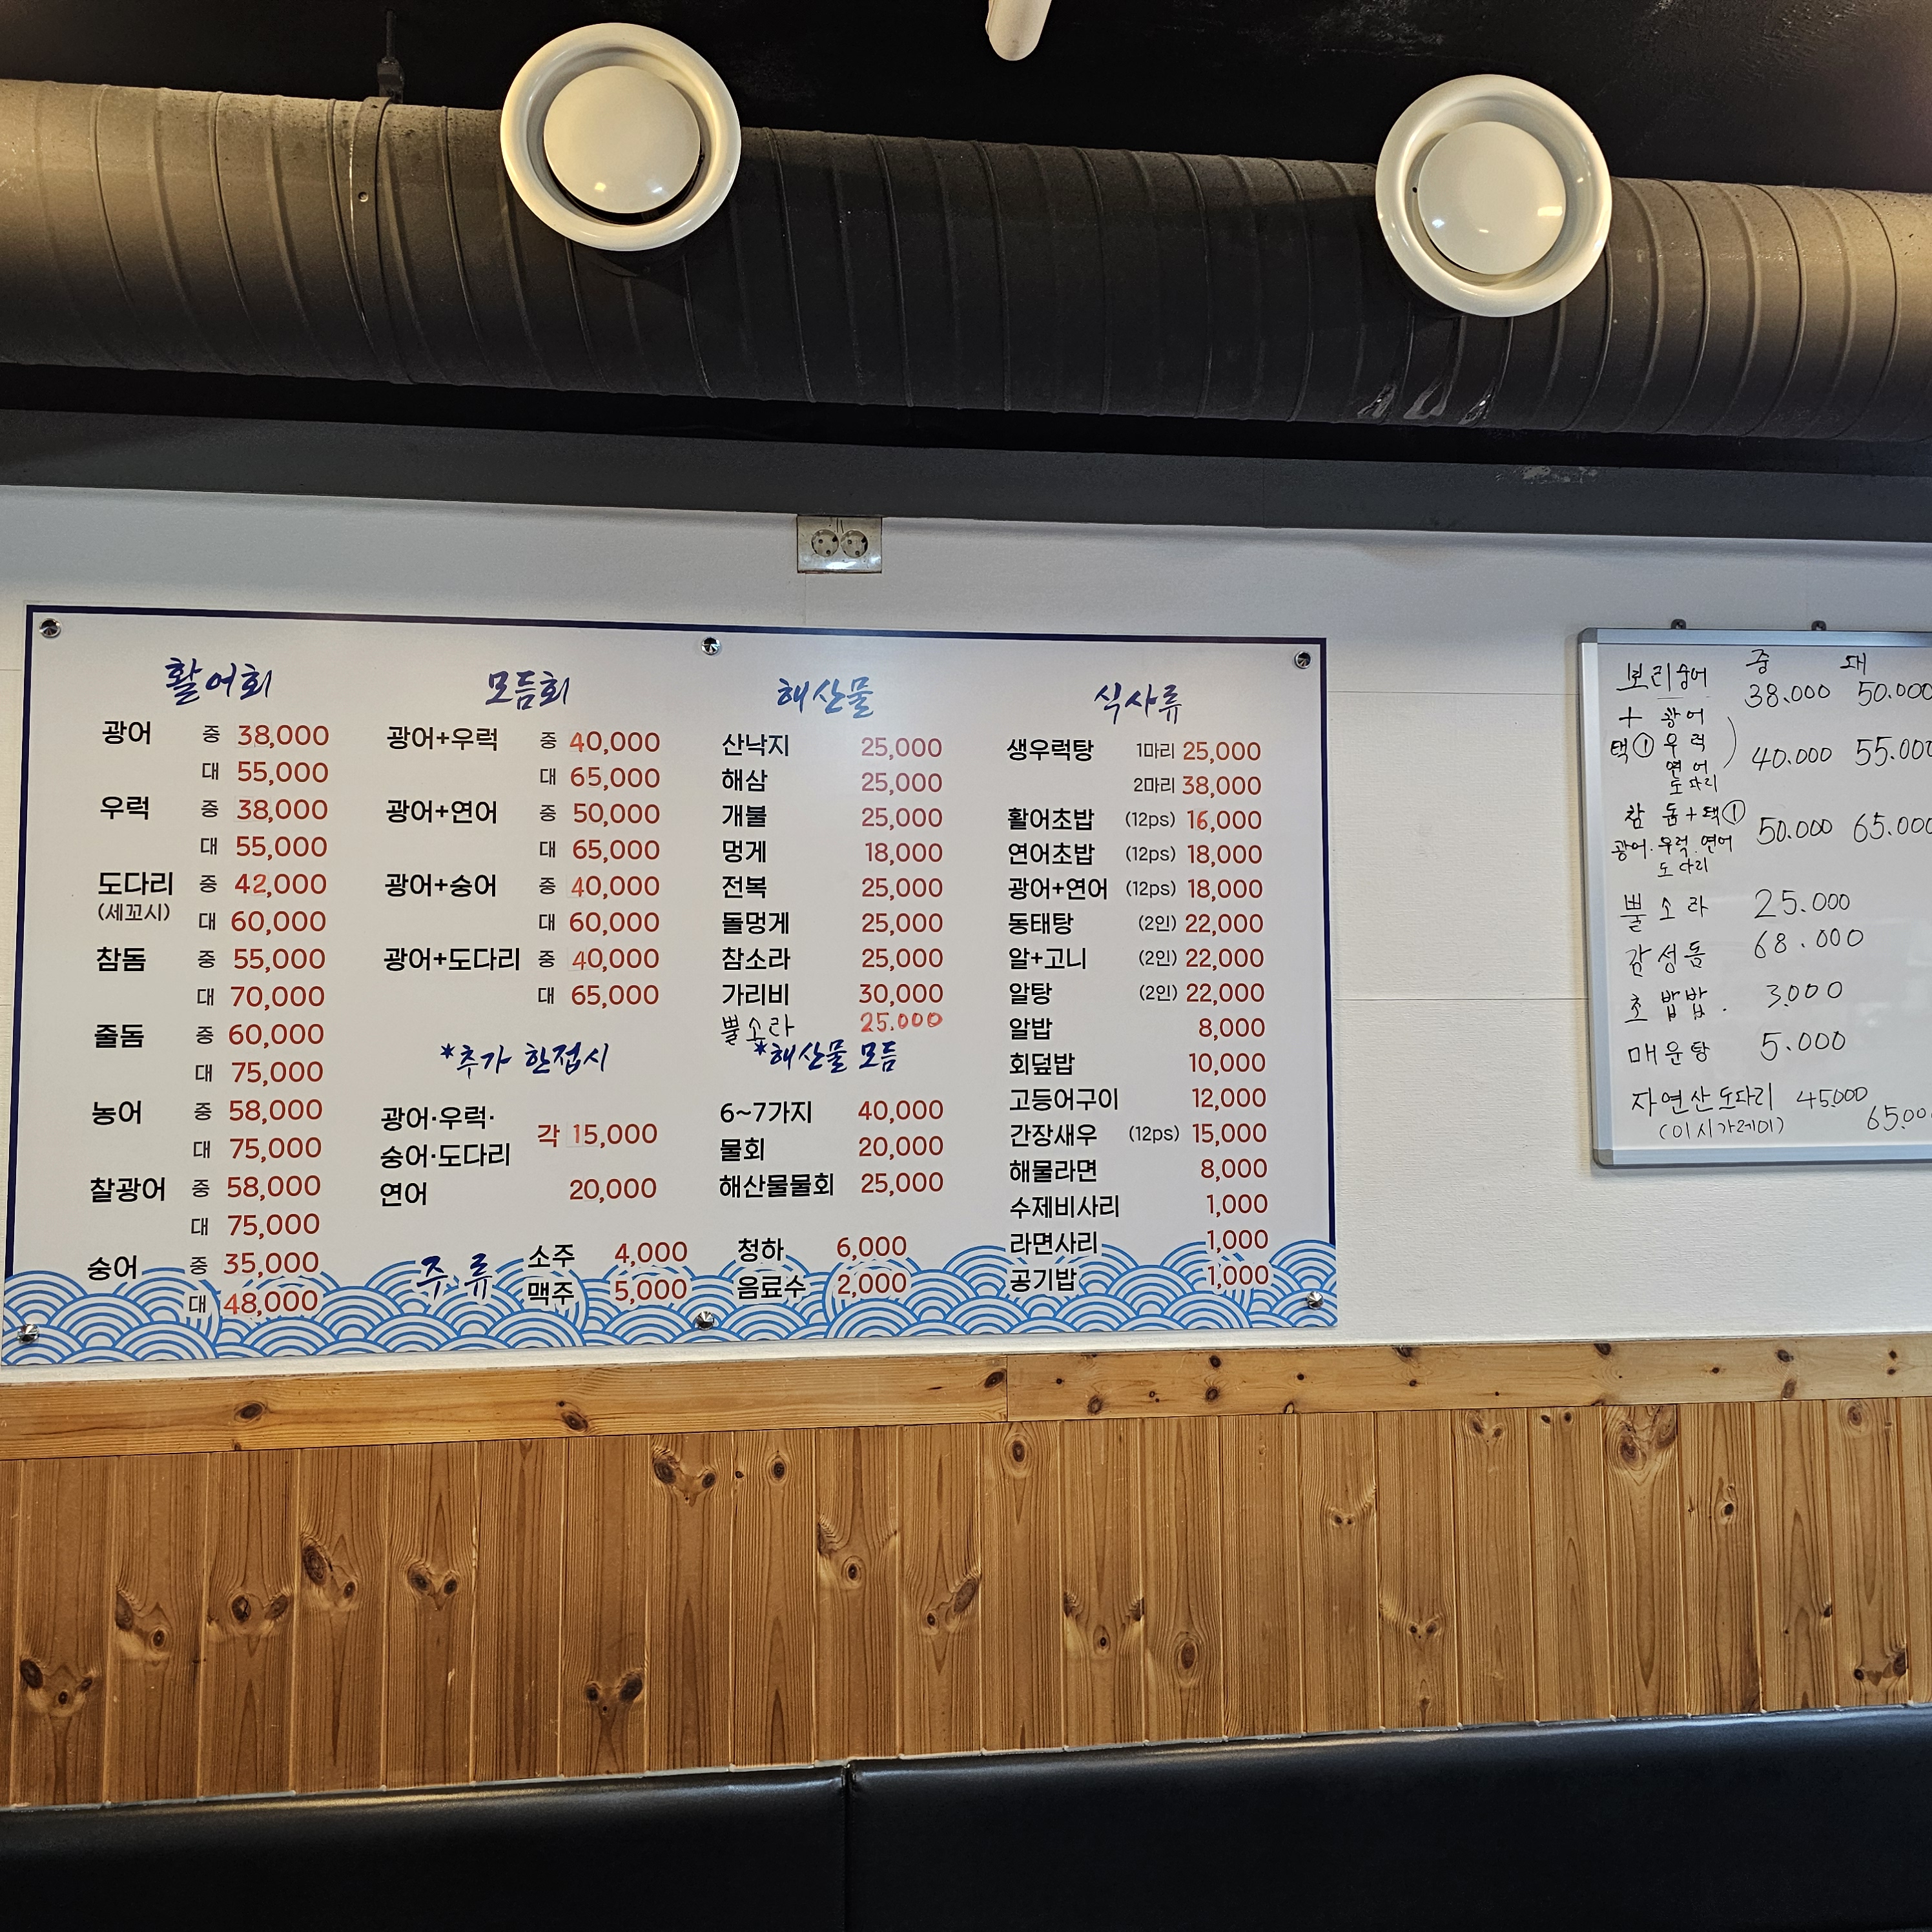 활어회
광어 중 38,000
대 55,000
우럭 중 38,000
대 55,000
도다리 중 42,000
(세꼬시) 대 60,000
참돔 중 55,000
대 70,000
줄돔 중 60,000
대 75,000
농어 중 58,000
대 75,000
찰광어 중 58,000
대 75,000
숭어 중 35,000
대 48,000
모듬회
광어+우럭 중 40,000
대 65,000
광어+연어 중 50,000
대 65,000
광어+숭어 중 40,000
대 60,000
광어+도다리 중 40,000
대 65,000
*추가 한접시
광어·우럭·
숭어·도다리 각 15,000
연어 20,000
해산물
산낙지 25,000
해삼 25,000
개불 25,000
멍게 18,000
전복 25,000
돌멍게 25,000
참소라 25,000
가리비 30,000
뿔소라 25.000
*해산물 모듬
6~7가지 40,000
물회 20,000
해산물물회 25,000
주류
소주 4,000
맥주 5,000
청하 6,000
음료수 2,000
식사류
생우럭탕 1마리 25,000
2마리 38,000
활어초밥 (12ps) 16,000
연어초밥 (12ps) 18,000
광어+연어 (12ps) 18,000
동태탕 (2인) 22,000
알+고니 (2인) 22,000
알탕 (2인) 22,000
알밥 8,000
회덮밥 10,000
고등어구이 12,000
간장새우 (12ps) 15,000
해물라면 8,000
수제비사리 1,000
라면사리 1,000
공기밥 1,000
중 대
보리숭어 38.000 50.000
+ 광어
택① 우럭 40.000 55.000
연어
도다리
참돔+택① 50.000 65.000
광어.우럭.연어
도다리
뿔소라 25.000
감성돔 68.000
초밥밥. 3.000
매운탕 5.000
자연산도다리 45.000
(이시가레이) 65.00